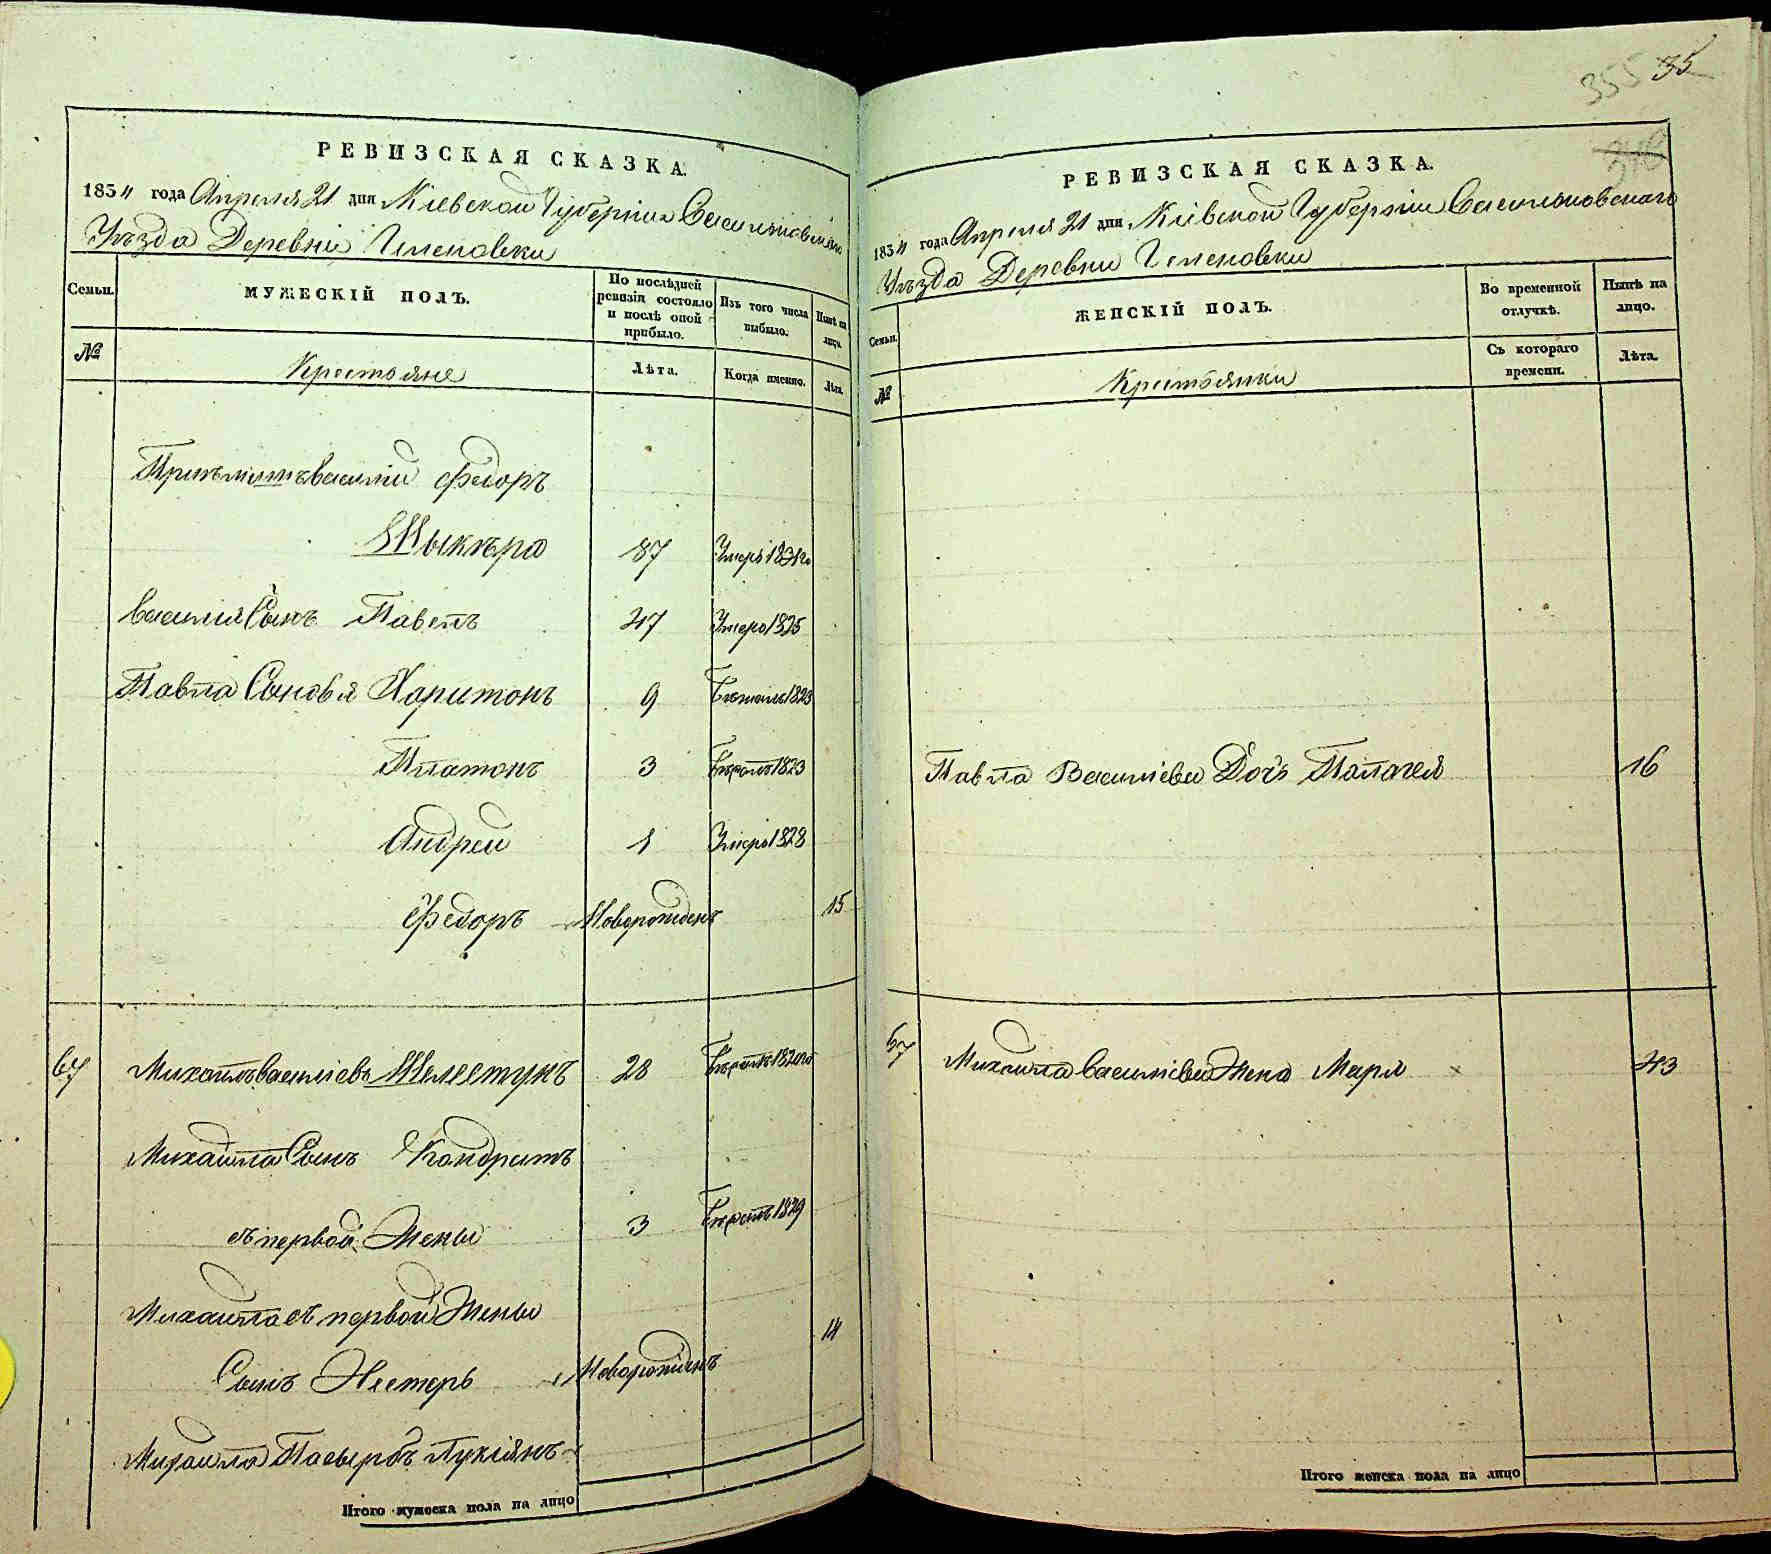 355 35
348
РЕВИЗСКАЯ СКАЗКА.
1834 года Апреля 21 дня Кіевской Губерніи Васильковскаго
Уѣзда Деревни
Семьи.
МУЖЕСКІЙ ПОЛЪ.
По послѣдней ревизіи состояло и послѣ оной прибыло.
Изъ того числа выбыло.
Нынѣ на лицо.
№
Крестьяне
Лѣта.
Когда именно.
Лѣта.
Василій Федоръ
87 Умеръ
Василія Сынъ Павелъ 47 Умеръ 1825
Павла Сыновья Харитонъ 9 1823
Платонъ 3 1823
Андрей 1 Умеръ 1828
Федоръ Новорожденъ 15
67 Михайло Васильевъ Шелестунъ 28
Михайла Сынъ Кондратъ
съ первой Жены 3 1829
Михайла съ первой Жены
Сынъ Нестеръ Новорожденъ 14
Михайла Пасырбъ Лукіянъ
Итого мужеска пола на лицо
РЕВИЗСКАЯ СКАЗКА.
1834 года Апреля 21 дня Кіевской Губерніи Васильковскаго
Уѣзда Деревни
Семьи.
ЖЕНСКІЙ ПОЛЪ.
Во временной отлучкѣ.
Нынѣ на лицо.
№
Крестьянки
Съ котораго времени.
Лѣта.
Павла Васильева Дочь Палагея 16
67 Михайла Васильева Жена Марія 43
Итого женска пола на лицо